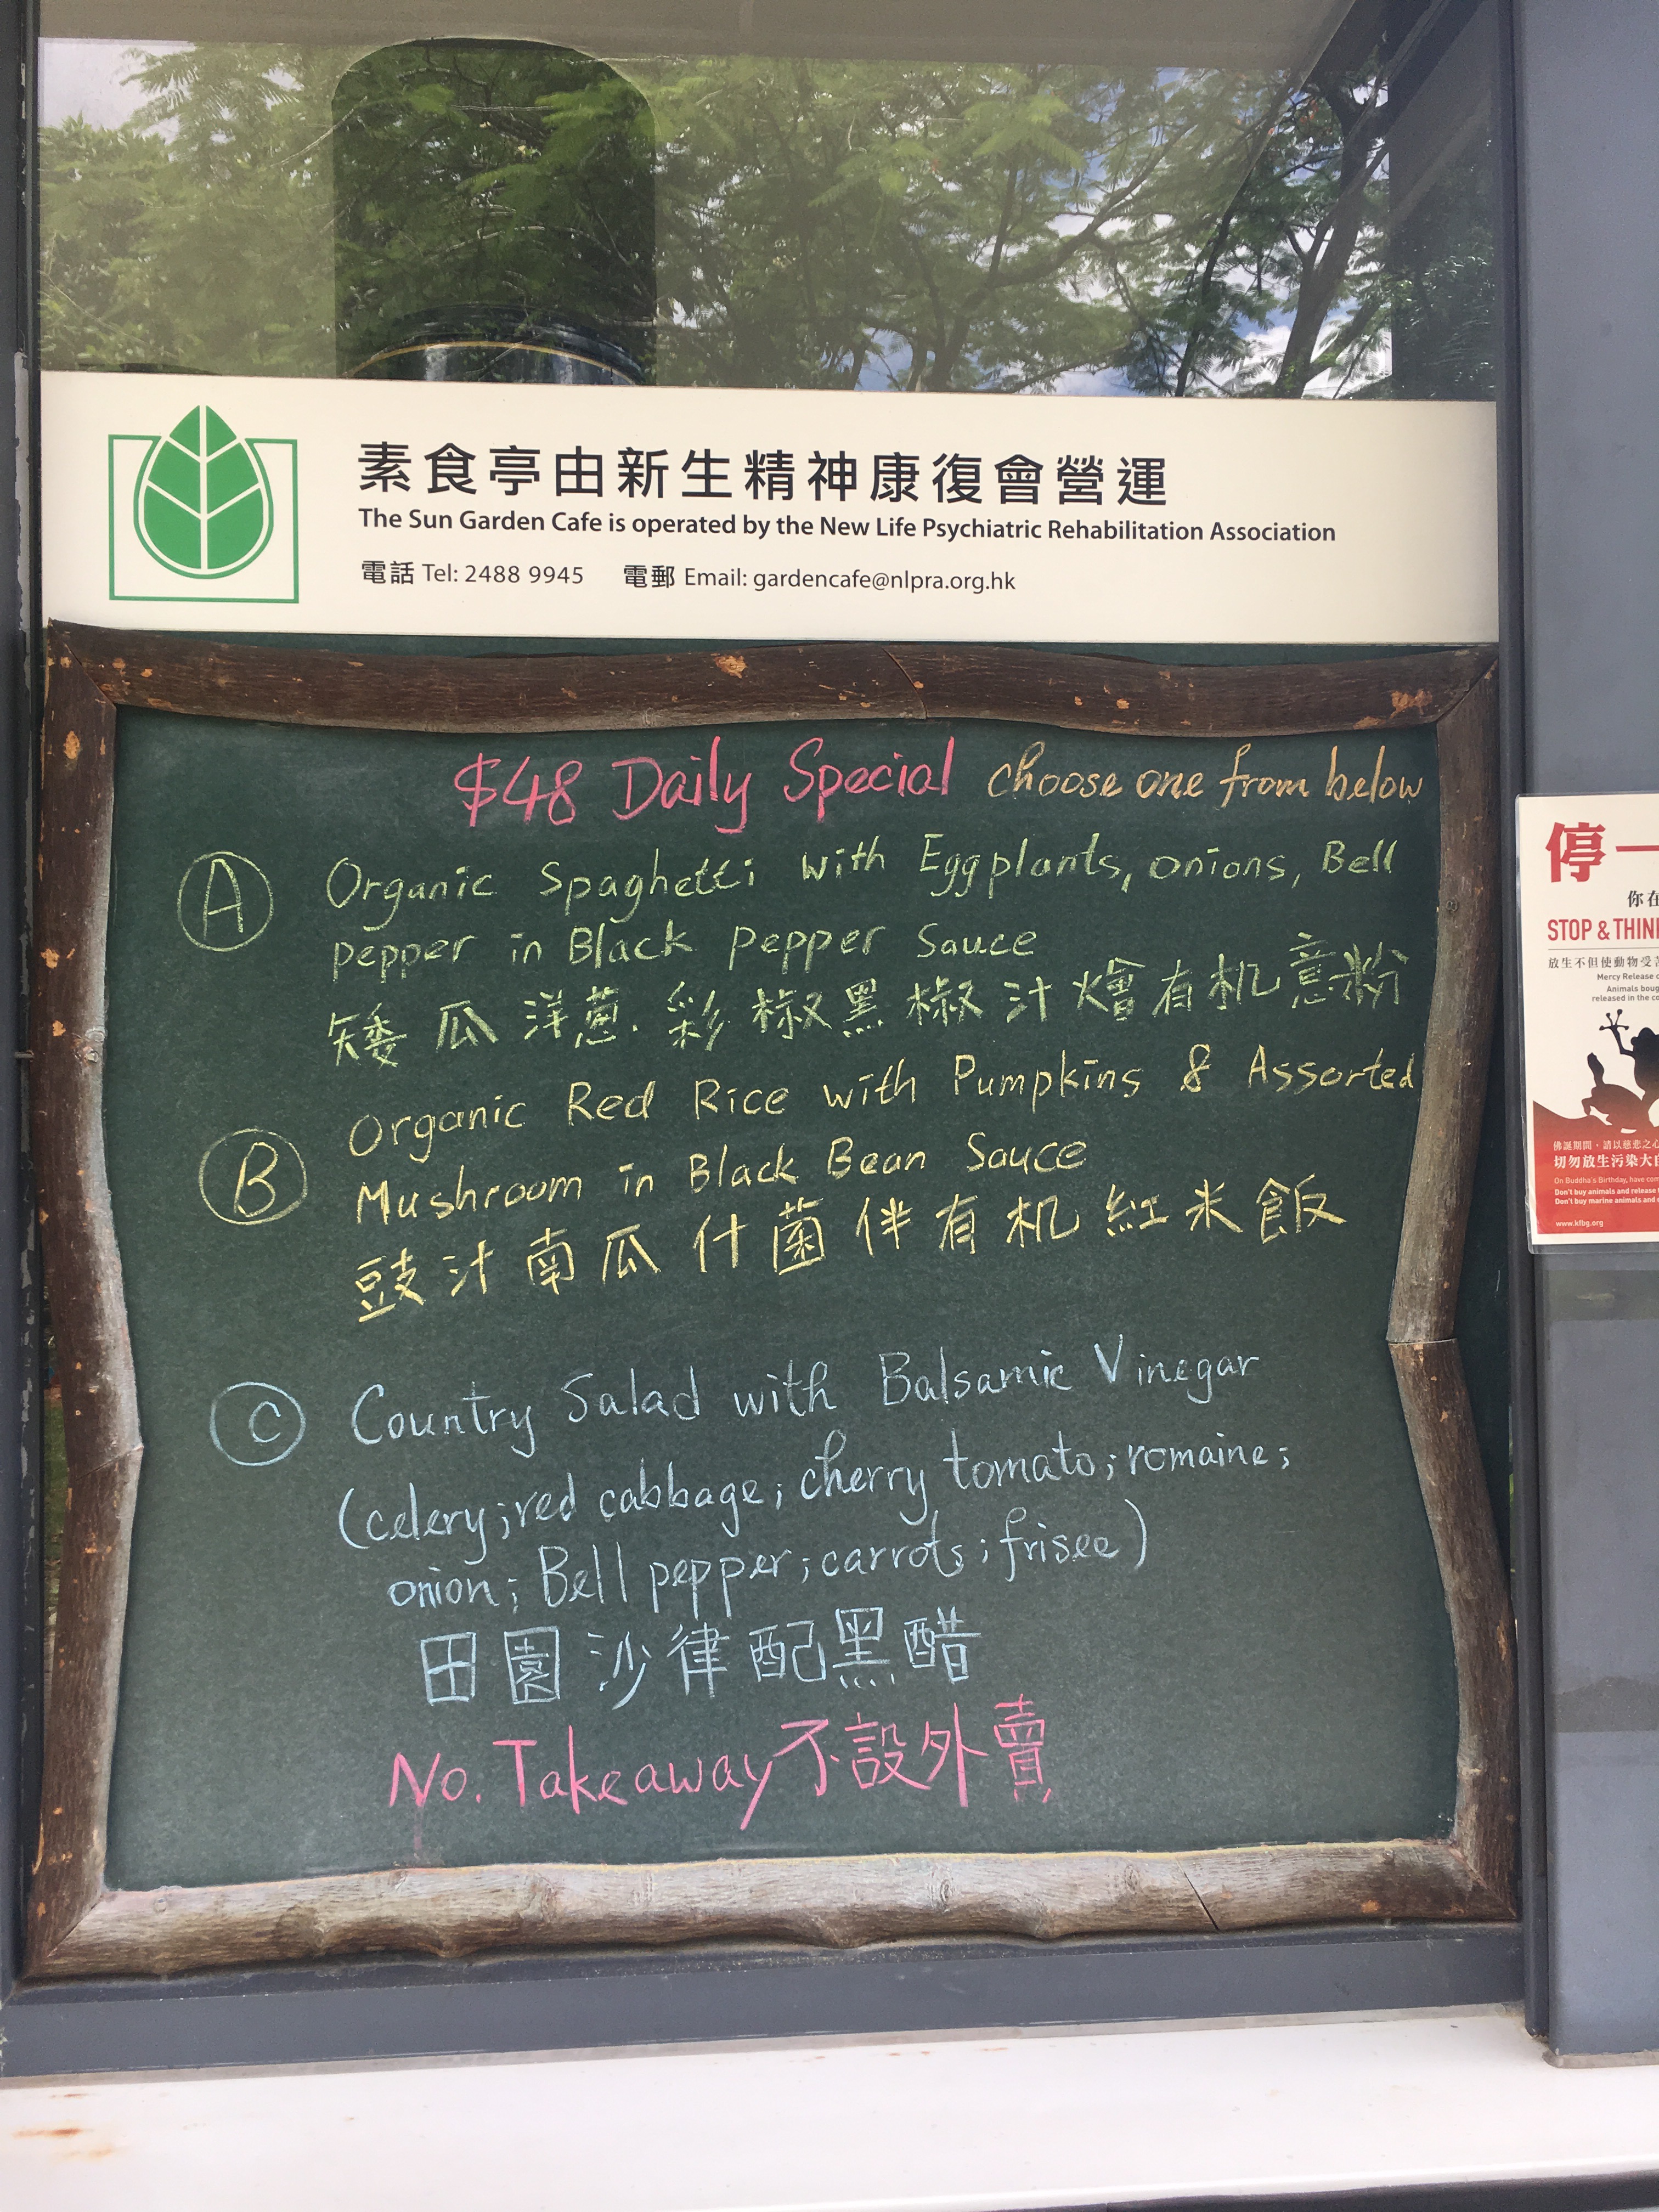 素食亭由新生精神康復會營運
The Sun Garden Cafe is operated by the New Life Psychiatric Rehabilitation Association
電話 Tel: 2488 9945 電郵 Email: gardencafe@nlpra.org.hk
$48 Daily Special choose one from below
A Organic Spaghetti with Eggplants, onions, Bell
pepper in Black pepper Sauce
矮瓜洋蔥.彩椒黑椒汁燴有机意粉
B Organic Red Rice with Pumpkins & Assorted
Mushroom in Black Bean Sauce
豉汁南瓜什菌伴有机紅米飯
C Country Salad with Balsamic Vinegar
(celery;red cabbage; cherry tomato; romaine;
onion; Bell pepper; carrots; frisee)
田園沙律配黑醋
No. Takeaway 不設外賣
停一
你在
STOP & THIN
放生不但使動物受
Mercy Release
Animals boug
released in the co
佛誕期間，請以慈悲之心
切勿放生污染大自
On Buddha's Birthday, have com
Don't buy animals and release
Don't buy marine animals and
www.kfbg.org